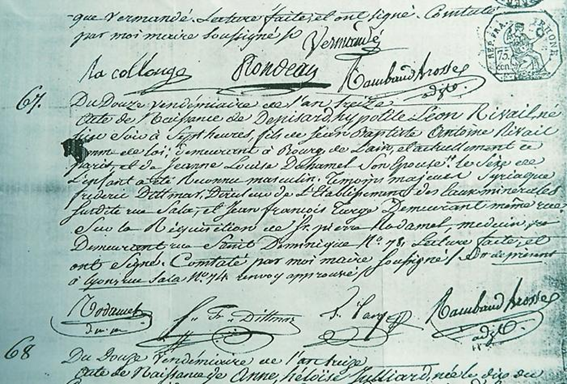 que Vermandé. Lecture faite, et ont signé. Constaté
par moi maire soussigné
Vermandé
La collonge Rondeau Rambaud brosse
adj.
67.
Du Douze Vendemiaire de l'an treize
Acte de Naissance de Denisard hypolite Léon Rivail né
hier Soir à Sept heures, fils de Jean Baptiste Antoine Rivail
homme de loi, demeurant à Bourg de l'ain, actuellement à
Paris, et de Jeanne Louise Duhamel Son Epouse. le Sexe de
l'enfant a été Reconnu masculin. Témoins majeurs Syriaque
frédéric Dittmar, Directeur de l'Etablissement des Eaux minérales
Susdite rue Sala, et Jean françois Targe Demeurant même rue
Sur la Réquisition de Sr. pierre Radamel, médecin
Demeurant rue Saint Dominique No. 78, Lecture faite, et
ont Signé. Constaté par moi maire Soussigné
à Lyon, rue Sala No. 74. renvoy approuvé
Radamel
d.m.m
fr. Dittmar Rambaud brosse
adj.
68
Du Douze Vendemiaire de l'an treize
Acte de Naissance de Anne, héloïse née le dix du